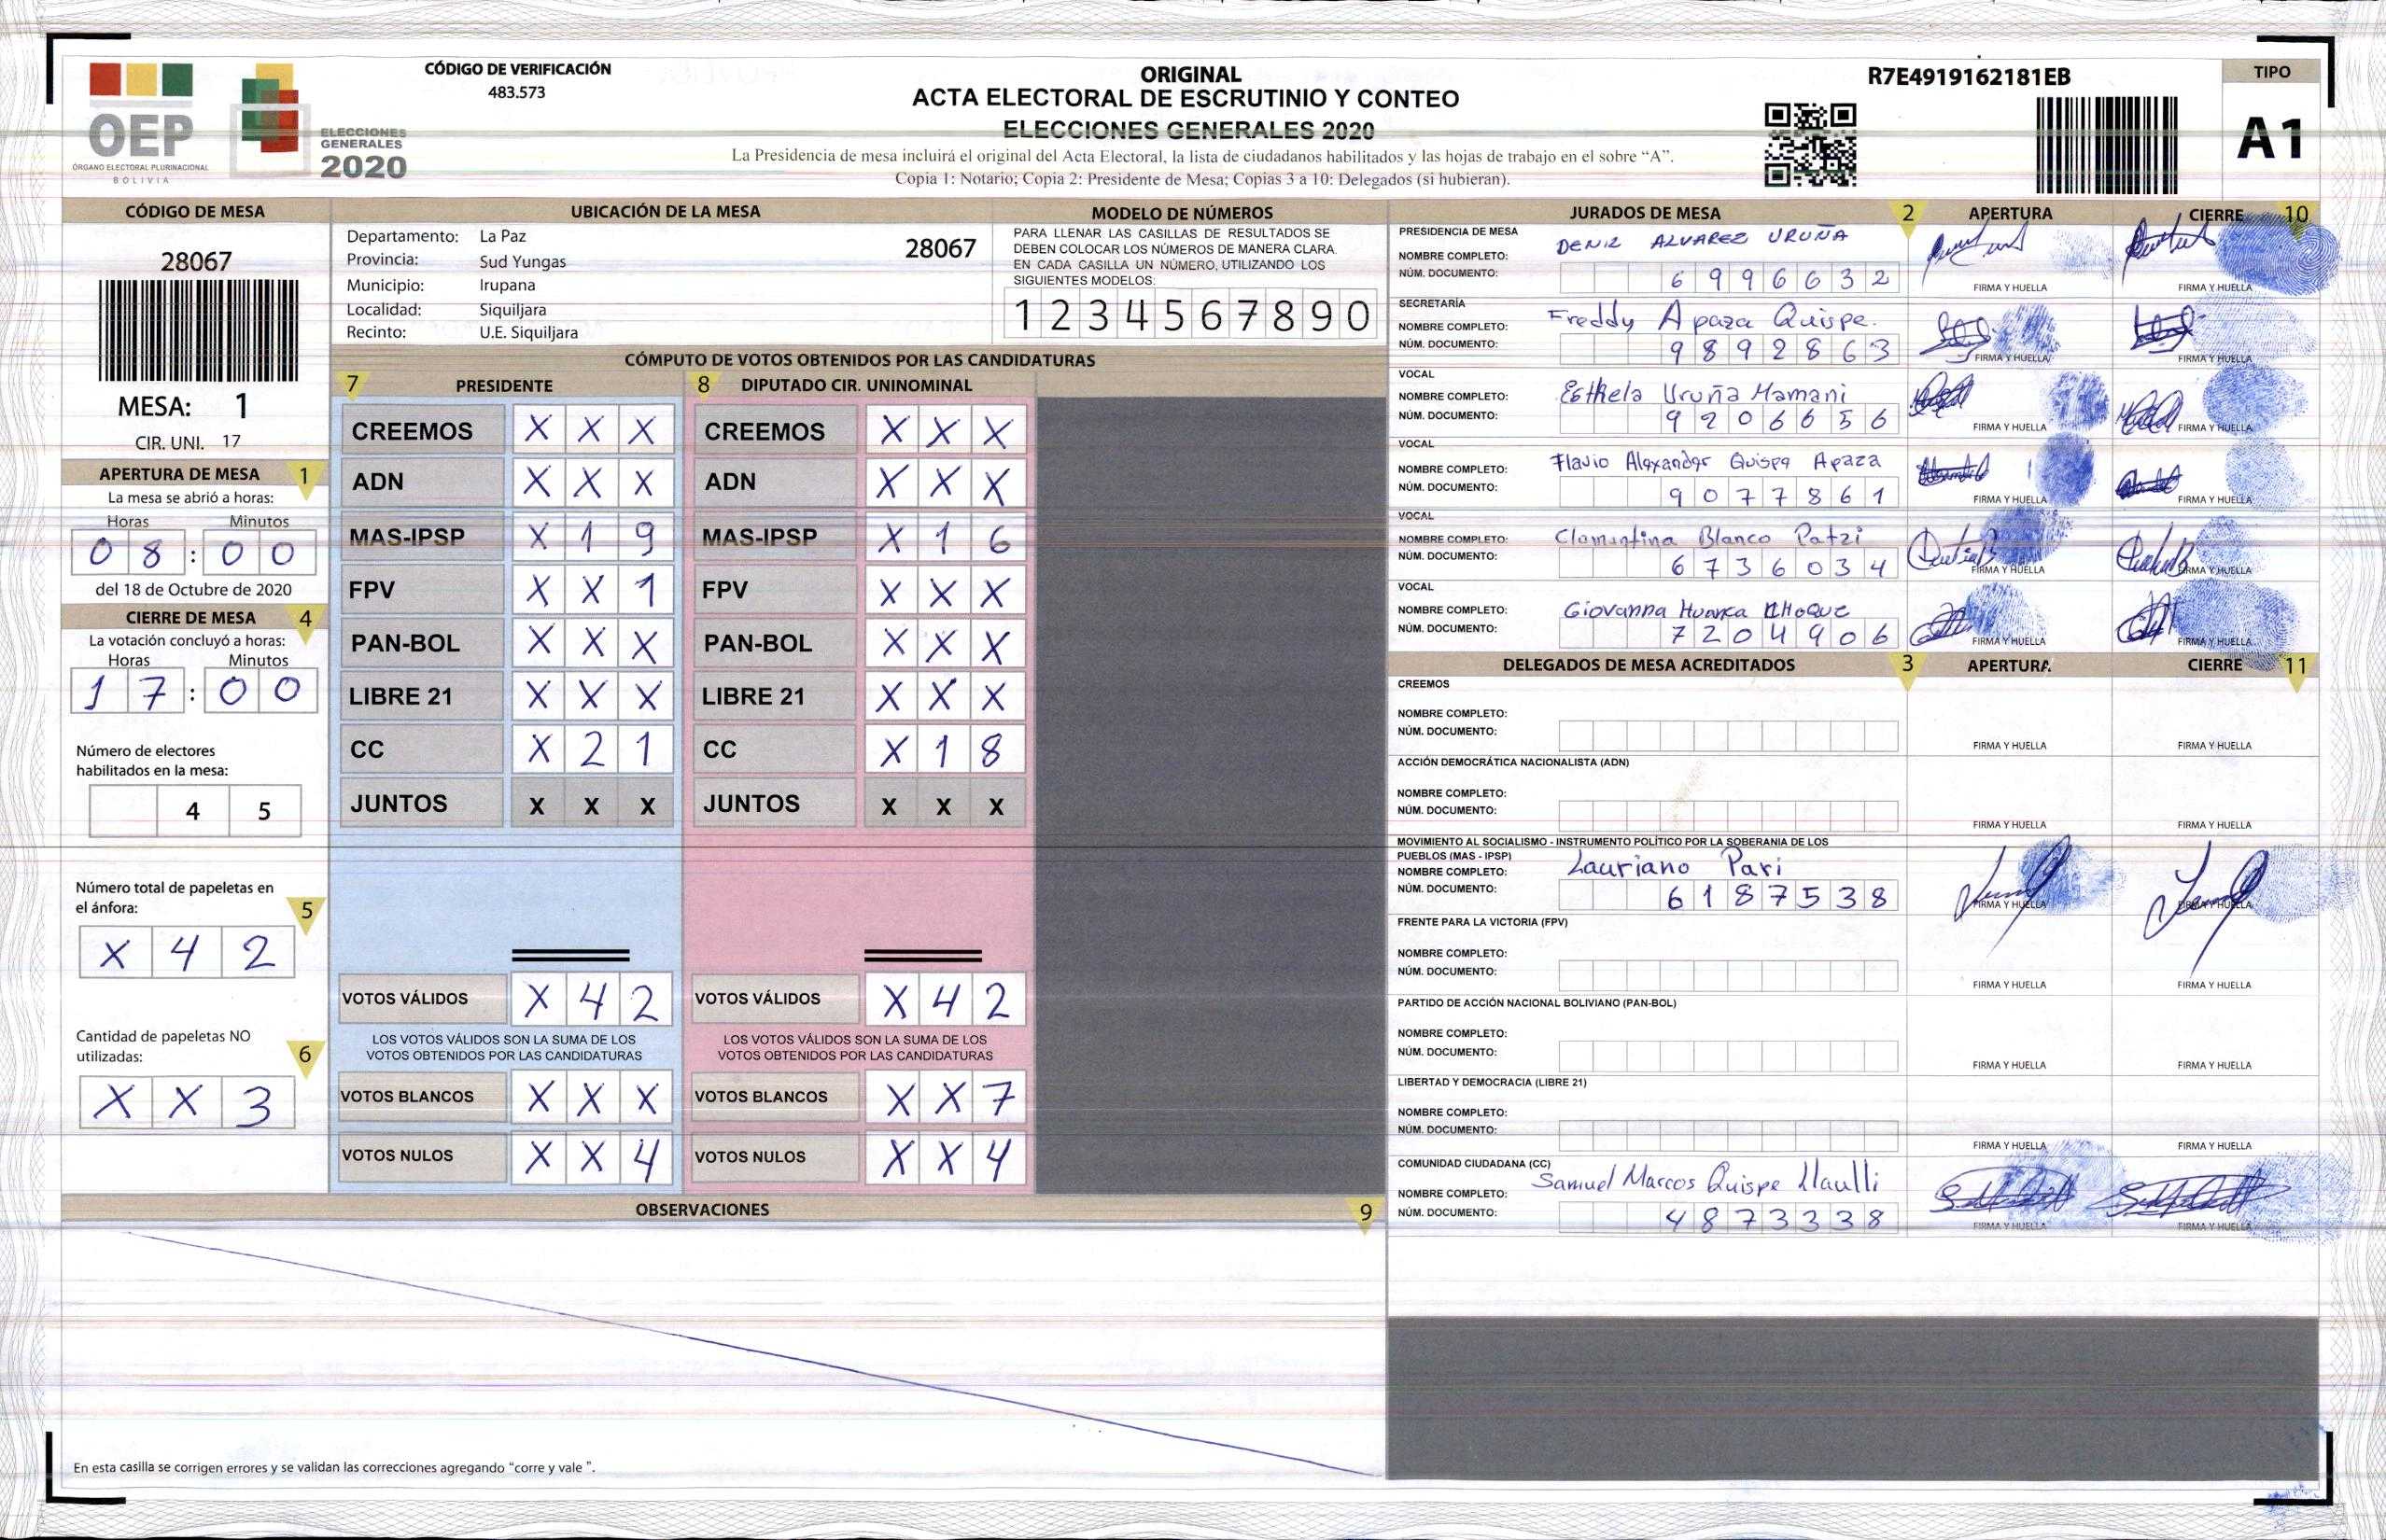 CÓDIGO DE VERIFICACIÓN
483.573
OEP
ÓRGANO ELECTORAL PLURINACIONAL
BOLIVIA
ELECCIONES
GENERALES
2020
ORIGINAL
ACTA ELECTORAL DE ESCRUTINIO Y CONTEO
ELECCIONES GENERALES 2020
La Presidencia de mesa incluirá el original del Acta Electoral, la lista de ciudadanos habilitados y las hojas de trabajo en el sobre “A”.
Copia 1: Notario; Copia 2: Presidente de Mesa; Copias 3 a 10: Delegados (si hubieran).
R7E4919162181EB
TIPO
A1
CÓDIGO DE MESA
28067
MESA: 1
CIR. UNI. 17
APERTURA DE MESA 1
La mesa se abrió a horas:
Horas Minutos
0 8 : 0 0
del 18 de Octubre de 2020
CIERRE DE MESA 4
La votación concluyó a horas:
Horas Minutos
1 7 : 0 0
Número de electores
habilitados en la mesa:
4 5
Número total de papeletas en
el ánfora: 5
X 4 2
Cantidad de papeletas NO
utilizadas: 6
X X 3
UBICACIÓN DE LA MESA
Departamento: La Paz 28067
Provincia: Sud Yungas
Municipio: Irupana
Localidad: Siquiljara
Recinto: U.E. Siquiljara
MODELO DE NÚMEROS
PARA LLENAR LAS CASILLAS DE RESULTADOS SE
DEBEN COLOCAR LOS NÚMEROS DE MANERA CLARA.
EN CADA CASILLA UN NÚMERO, UTILIZANDO LOS
SIGUIENTES MODELOS:
1 2 3 4 5 6 7 8 9 0
CÓMPUTO DE VOTOS OBTENIDOS POR LAS CANDIDATURAS
7 PRESIDENTE 8 DIPUTADO CIR. UNINOMINAL
CREEMOS X X X CREEMOS X X X
ADN X X X ADN X X X
MAS-IPSP X 1 9 MAS-IPSP X 1 6
FPV X X 1 FPV X X X
PAN-BOL X X X PAN-BOL X X X
LIBRE 21 X X X LIBRE 21 X X X
CC X 2 1 CC X 1 8
JUNTOS X X X JUNTOS X X X
VOTOS VÁLIDOS X 4 2 VOTOS VÁLIDOS X 4 2
LOS VOTOS VÁLIDOS SON LA SUMA DE LOS LOS VOTOS VÁLIDOS SON LA SUMA DE LOS
VOTOS OBTENIDOS POR LAS CANDIDATURAS VOTOS OBTENIDOS POR LAS CANDIDATURAS
VOTOS BLANCOS X X X VOTOS BLANCOS X X 7
VOTOS NULOS X X 4 VOTOS NULOS X X 4
OBSERVACIONES 9
En esta casilla se corrigen errores y se validan las correcciones agregando “corre y vale ”.
JURADOS DE MESA 2 APERTURA CIERRE 10
PRESIDENCIA DE MESA
NOMBRE COMPLETO: DENIZ ALVAREZ URUÑA
NÚM. DOCUMENTO: 6 9 9 6 6 3 2
FIRMA Y HUELLA FIRMA Y HUELLA
SECRETARÍA
NOMBRE COMPLETO: Freddy Apaza Quispe.
NÚM. DOCUMENTO: 9 8 9 2 8 6 3
FIRMA Y HUELLA FIRMA Y HUELLA
VOCAL
NOMBRE COMPLETO: Esthela Uruña Mamani
NÚM. DOCUMENTO: 9 2 0 6 6 5 6
FIRMA Y HUELLA FIRMA Y HUELLA
VOCAL
NOMBRE COMPLETO: Flavio Alexander Quispe Apaza
NÚM. DOCUMENTO: 9 0 7 7 8 6 1
FIRMA Y HUELLA FIRMA Y HUELLA
VOCAL
NOMBRE COMPLETO: Clementina Blanco Patzi
NÚM. DOCUMENTO: 6 7 3 6 0 3 4
FIRMA Y HUELLA FIRMA Y HUELLA
VOCAL
NOMBRE COMPLETO: Giovanna Huanca
NÚM. DOCUMENTO: 7 2 0 4 9 0 6
FIRMA Y HUELLA FIRMA Y HUELLA
DELEGADOS DE MESA ACREDITADOS 3 APERTURA CIERRE 11
CREEMOS
NOMBRE COMPLETO:
NÚM. DOCUMENTO:
FIRMA Y HUELLA FIRMA Y HUELLA
ACCIÓN DEMOCRÁTICA NACIONALISTA (ADN)
NOMBRE COMPLETO:
NÚM. DOCUMENTO:
FIRMA Y HUELLA FIRMA Y HUELLA
MOVIMIENTO AL SOCIALISMO - INSTRUMENTO POLÍTICO POR LA SOBERANIA DE LOS
PUEBLOS (MAS - IPSP)
NOMBRE COMPLETO: Lauriano Pari
NÚM. DOCUMENTO: 6 1 8 7 5 3 8
FIRMA Y HUELLA FIRMA Y HUELLA
FRENTE PARA LA VICTORIA (FPV)
NOMBRE COMPLETO:
NÚM. DOCUMENTO:
FIRMA Y HUELLA FIRMA Y HUELLA
PARTIDO DE ACCIÓN NACIONAL BOLIVIANO (PAN-BOL)
NOMBRE COMPLETO:
NÚM. DOCUMENTO:
FIRMA Y HUELLA FIRMA Y HUELLA
LIBERTAD Y DEMOCRACIA (LIBRE 21)
NOMBRE COMPLETO:
NÚM. DOCUMENTO:
FIRMA Y HUELLA FIRMA Y HUELLA
COMUNIDAD CIUDADANA (CC)
NOMBRE COMPLETO: Samuel Marcos Quispe Llaulli
NÚM. DOCUMENTO: 4 8 7 3 3 3 8
FIRMA Y HUELLA FIRMA Y HUELLA